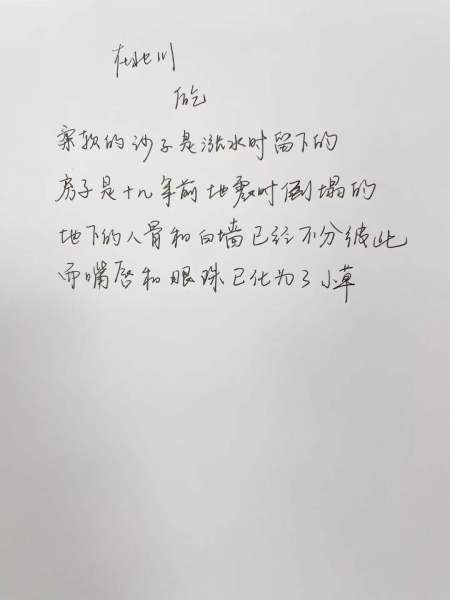 在北川
柔软的沙子是涨水时留下的
房子是十几年前地震时倒塌的
地下的人骨和白墙已经不分彼此
而嘴唇和眼珠已化为了小草